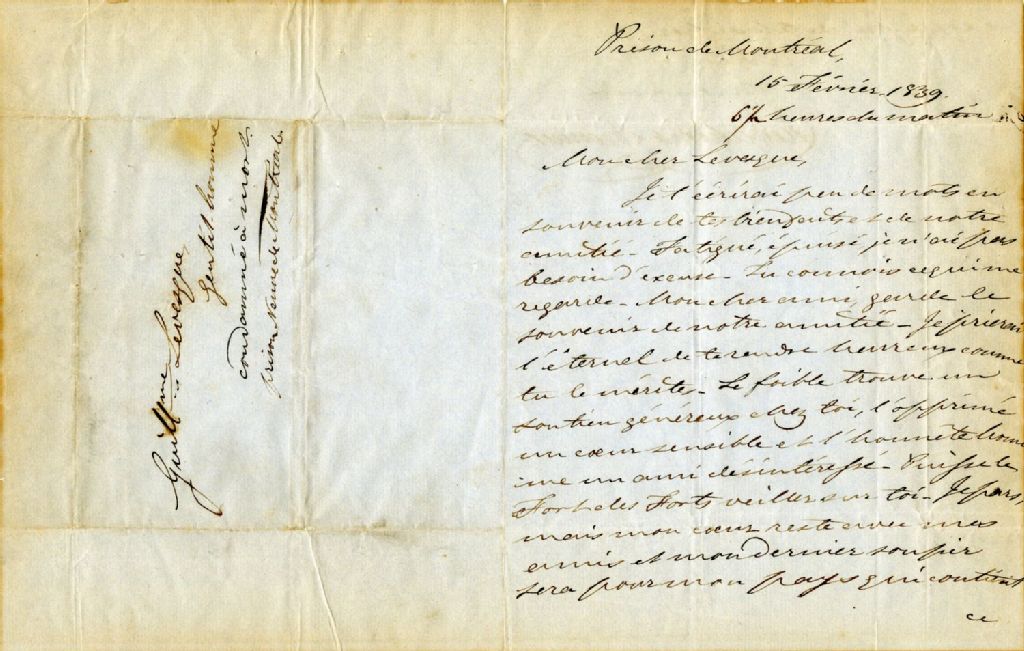 Prison de Montréal,
15 Février 1839.
6½ heures du matin
Mon cher Levesque,
Je t'écrirai peu de mots en
souvenir de tes bienfaits et de notre
amitié - Fatigué, épuisé je n'ai pas
besoin d'excuse - Tu connois ce qui me
regarde - Mon cher ami, garde le
souvenir de notre amitié - Je prierai
l'éternel de te rendre heureux comme
tu le mérites - Le foible trouve un
soutien généreux chez toi, l'opprimé
un cœur sensible et l'honnête hom
me un ami désintéressé - Puisse le
Fort des Forts veiller sur toi - Je pars,
mais mon cœur reste avec mes
amis et mon dernier soupir
sera pour mon pays qui contient
ce
Guillme Levesque,
Gentilhomme
condamné à mort.
prison Neuve de Montréal.